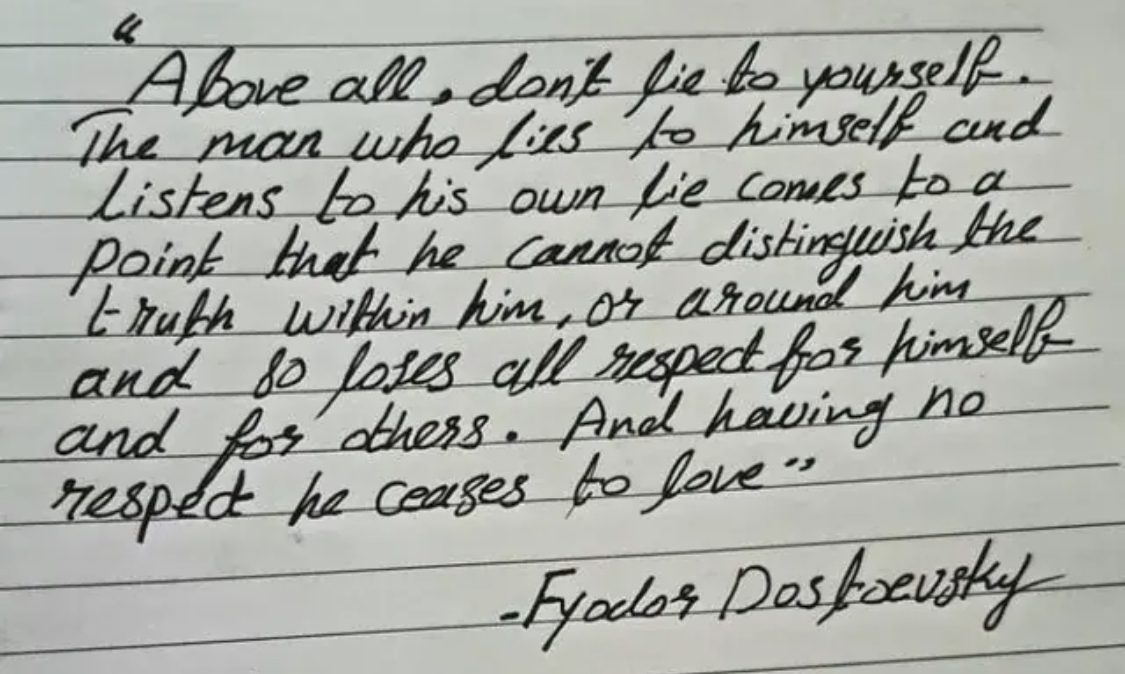 “
Above all, don't lie to yourself.
The man who lies to himself and
listens to his own lie comes to a
point that he cannot distinguish the
truth within him, or around him
and so loses all respect for himself
and for others. And having no
respect he ceases to love"
-Fyodor Dostoevsky